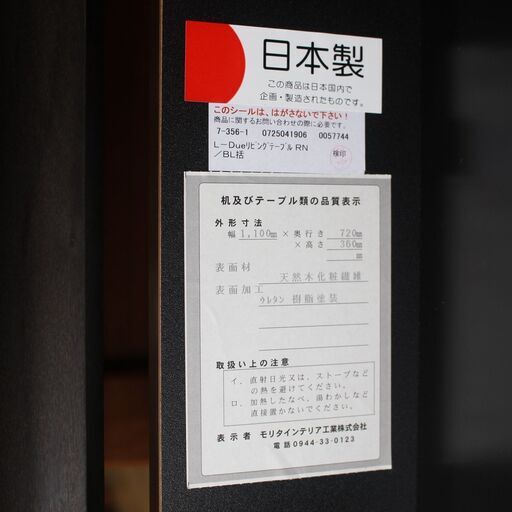 日本製
この商品は日本国内で
企画・製造されたものです。
このシールは、はがさないで下さい！
商品に関するお問い合わせの際に必要です。
7-356-1 0725041906 0057744
L-Dueﾘﾋﾞﾝｸﾞﾃｰﾌﾞﾙ RN
／BL括
検印
机及びテーブル類の品質表示
外形寸法
幅 1,100㎜ × 奥行き 720㎜
× 高さ 360㎜
㎜
表面材 天然木化粧繊維
表面加工
ウレタン 樹脂塗装
取扱い上の注意
イ．直射日光又は、ストーブなど
の熱を避けてください。
ロ．加熱したなべ、湯わかしなど
直接置かないでください。
表示者 モリタインテリア工業株式会社
電話 0944-33-0123